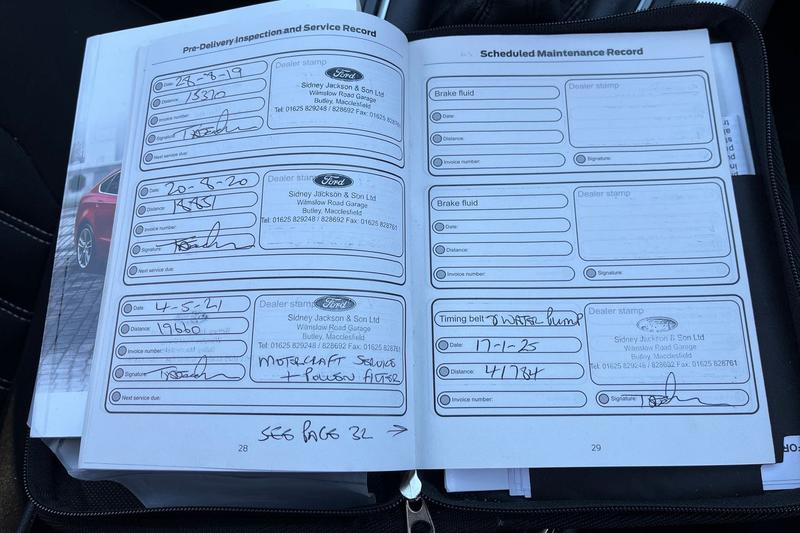 Pre-Delivery Inspection and Service Record
Date: 28-8-19
Distance: 15370
Invoice number:
Signature:
Next service due:
Dealer stamp
Ford
Sidney Jackson & Son Ltd
Wilmslow Road Garage
Butley, Macclesfield
Tel: 01625 829248 / 828692 Fax: 01625 828761
Date: 20-8-20
Distance:
Invoice number:
Signature:
Next service due:
Dealer stamp
Ford
Sidney Jackson & Son Ltd
Wilmslow Road Garage
Butley, Macclesfield
Tel: 01625 829248 / 828692 Fax: 01625 828761
Date 4-5-21
Distance: 19660
Invoice number:
Signature:
Next service due:
Dealer stamp
Ford
Sidney Jackson & Son Ltd
Wilmslow Road Garage
Butley, Macclesfield
Tel: 01625 829248 / 828692 Fax: 01625 828761
MOTORCRAFT SERVICE
+ POLLEN FILTER
SEE PAGE 32 →
28
Scheduled Maintenance Record
Brake fluid
Date:
Distance:
Invoice number:
Dealer stamp
Signature:
Brake fluid
Date:
Distance:
Invoice number:
Dealer stamp
Signature:
Timing belt & WATER PUMP
Date: 17-1-25
Distance: 41784
Invoice number:
Dealer stamp
Sidney Jackson & Son Ltd
Wilmslow Road Garage
Butley, Macclesfield
Tel: 01625 829248 / 828692 Fax: 01625 828761
Signature:
29